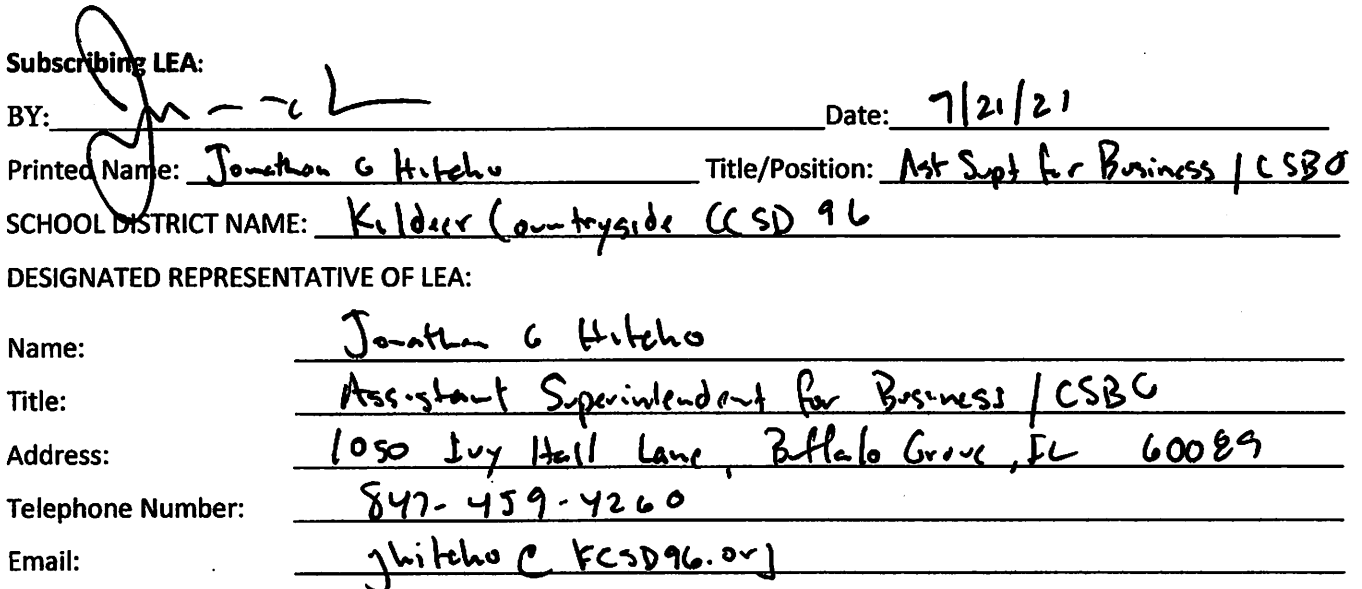 Subscribing LEA:
BY: Date: 7/21/21
Printed Name: Jonathan G Hitcho Title/Position: Ast Supt for Business / CSBO
SCHOOL DISTRICT NAME: Kildeer Countryside CCSD 96
DESIGNATED REPRESENTATIVE OF LEA:
Name: Jonathan G Hitcho
Title: Assistant Superintendent for Business / CSBO
Address: 1050 Ivy Hall Lane, Buffalo Grove, IL 60089
Telephone Number: 847-459-4260
Email: jhitcho@KCSD96.org